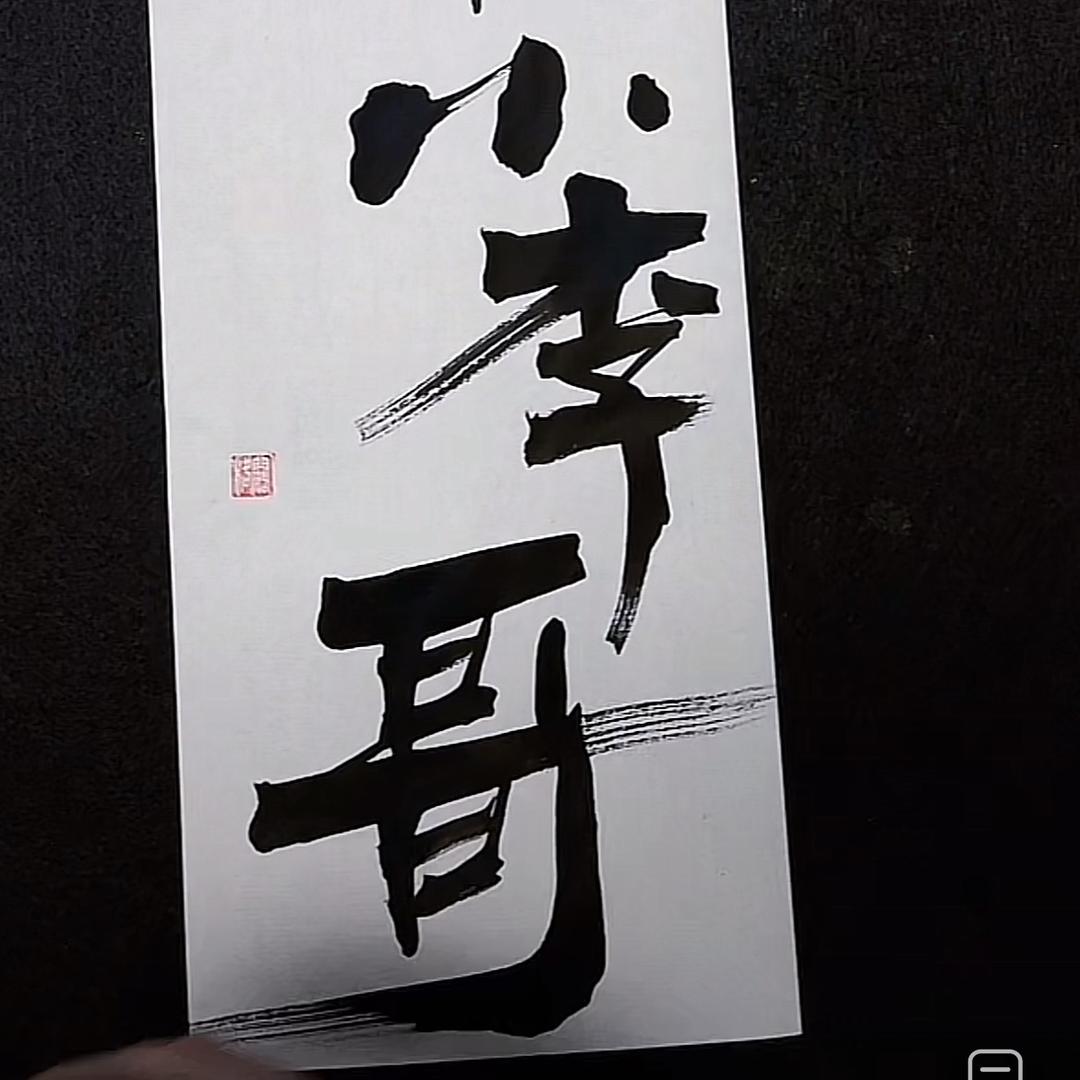 小李哥